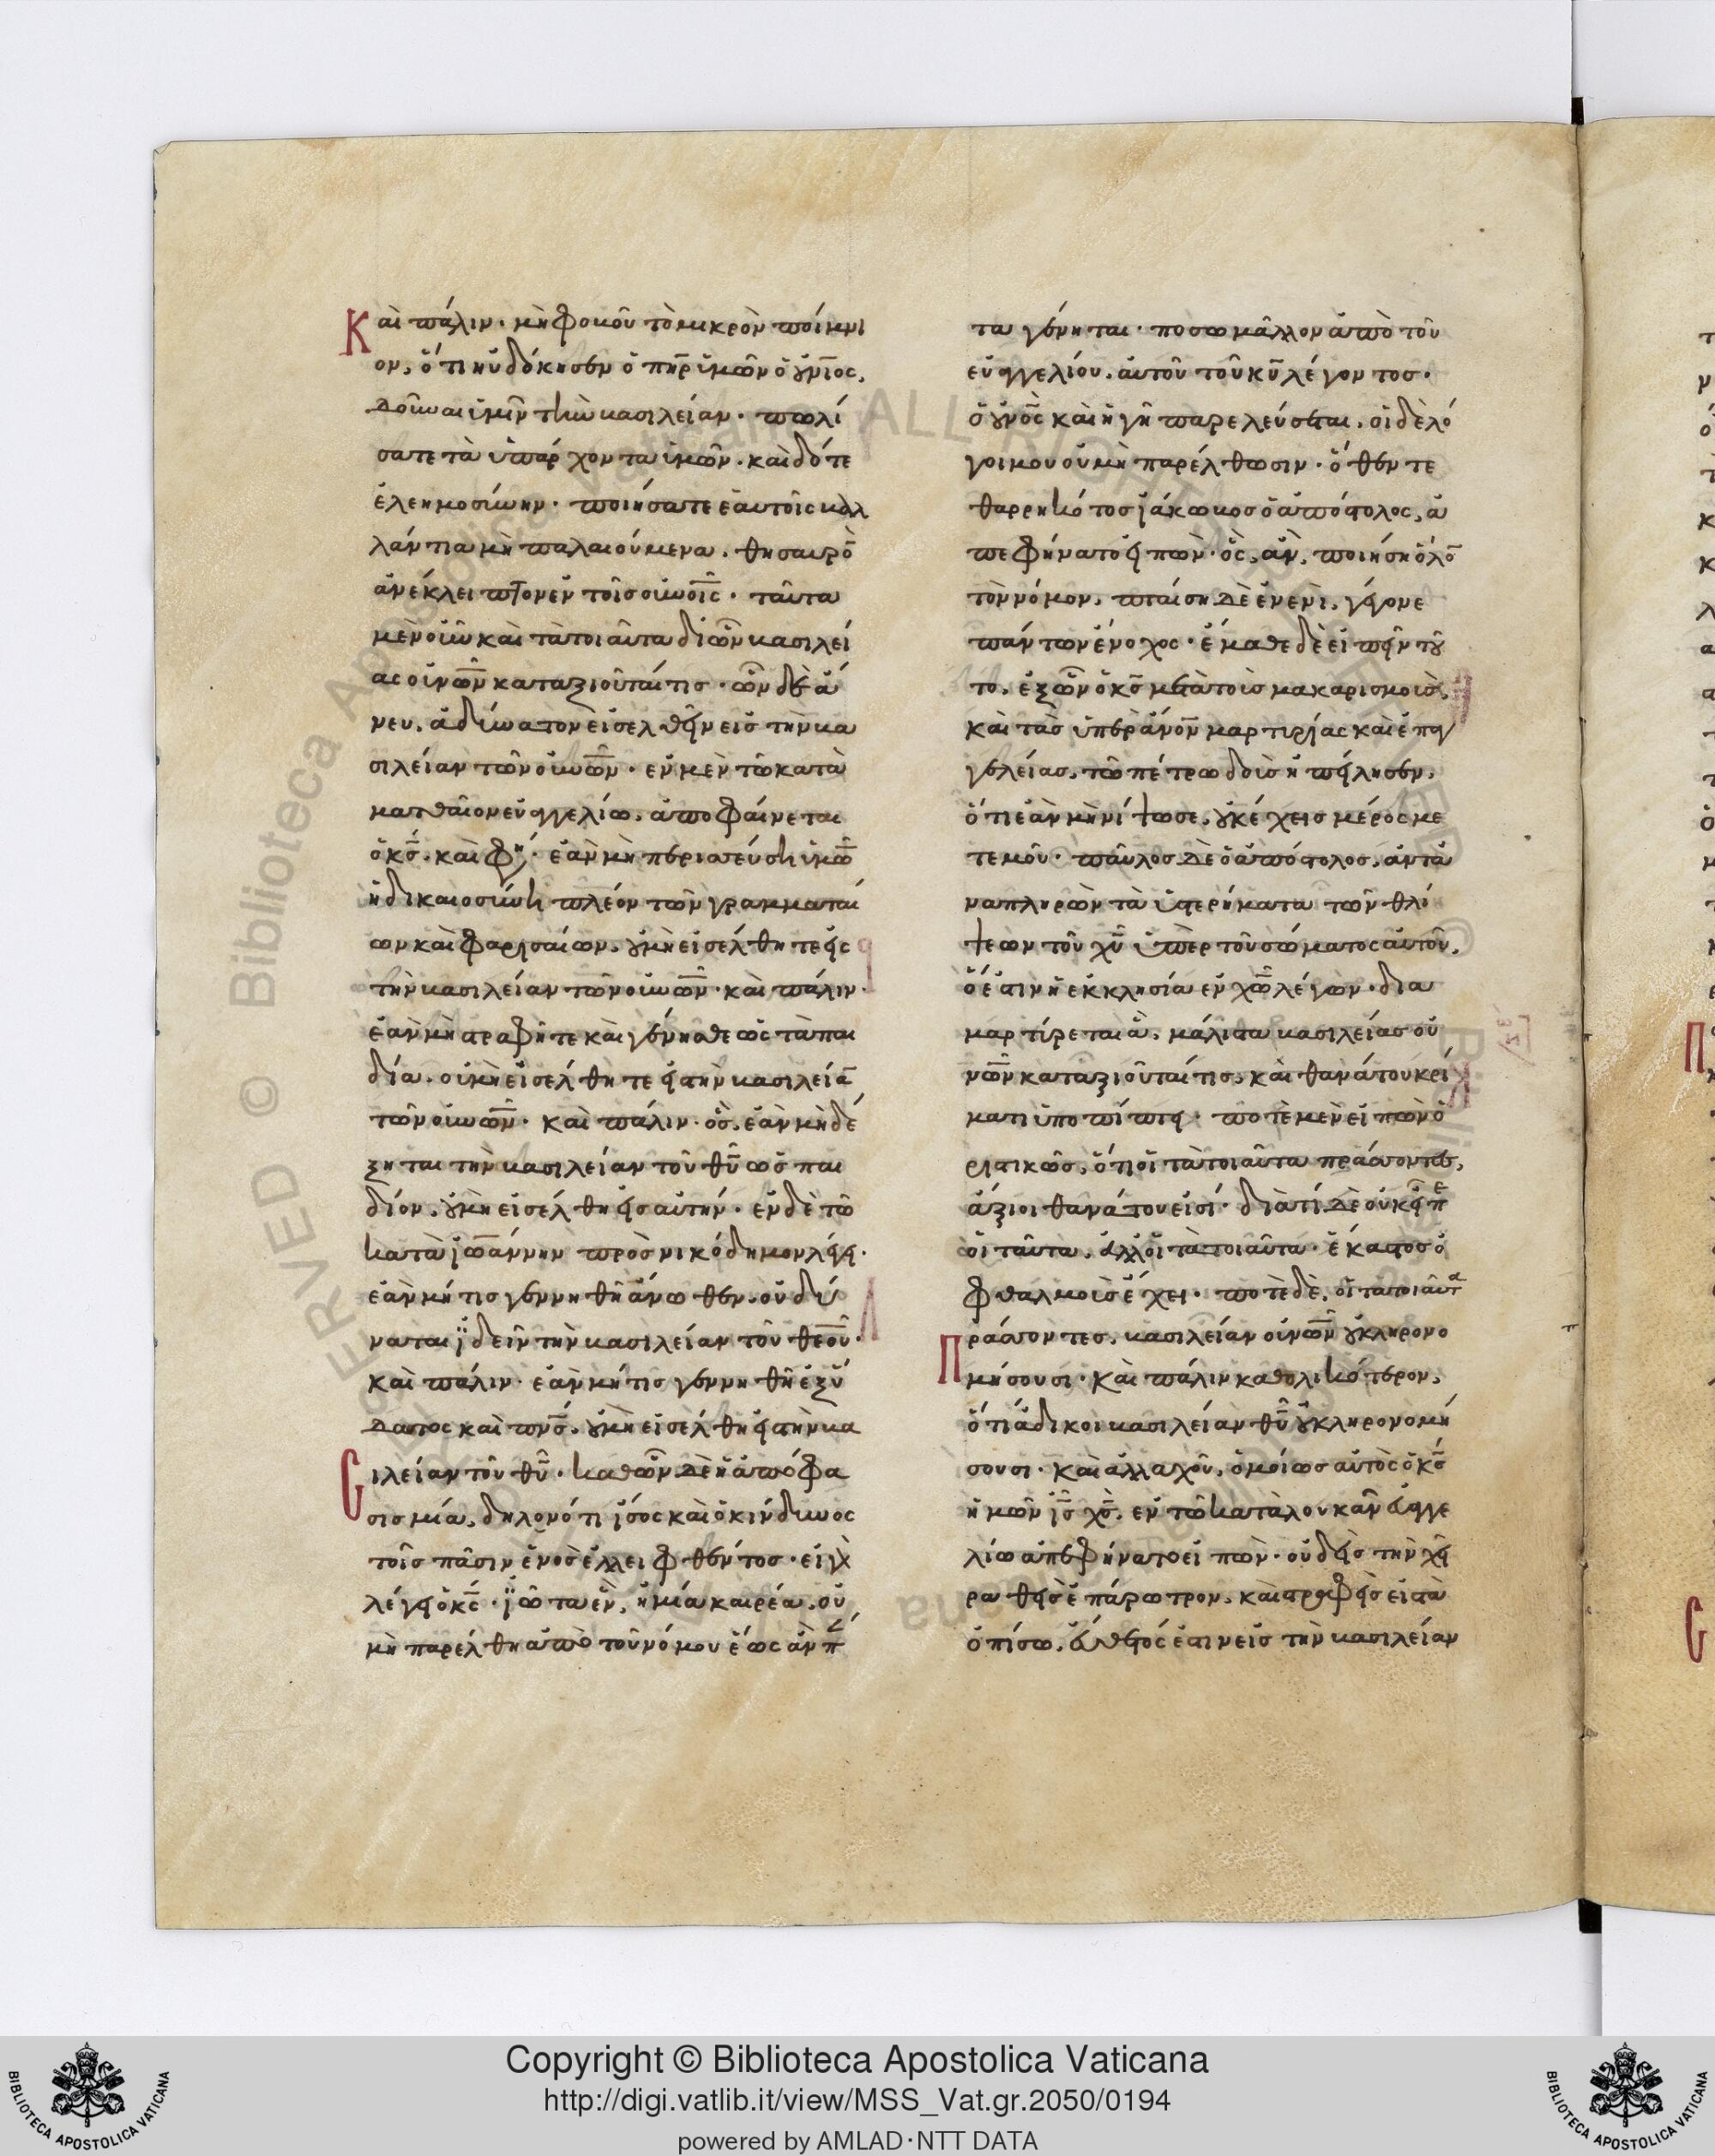 Καὶ πάλιν· μὴ φοβοῦ τὸ μικρὸν ποίμνι
ον, ὅτι ηὐδόκησεν ὁ πη̅ρ ὑμῶν ὁ οὐνι̅ος,
δοῦναι ὑμῖν τὴν βασιλείαν· πωλή
σατε τὰ ὑπάρχοντα ὑμῶν· καὶ δότε
ἐλεημοσύνην· ποιήσατε ἑαυτοῖς βαλ
λάντια μὴ παλαιούμενα· θησαυρὸ̅
ἀνέκλειπτον ἐν τοῖς οὐνοι̅ς· ταῦτα
μὲν οὖν καὶ τὰ τοιαῦτα δι' ὧν βασιλεί
ας οὐνω̅ν καταξιοῦταί τις· ὧν δὲ ἄ
νευ, ἀδύνατον εἰσελθεῖν εἰς τὴν βα
σιλείαν τῶν οὐνω̅ν· ἐν μὲν τῶ κατὰ
ματθαῖον εὐαγγελίω, ἀποφαίνεται
ὁ κς̅, καὶ φη· ἐὰν μὴ περισσεύση ὑμῶ̅
ἡ δικαιοσύνη πλέον τῶν γραμματαί
ων καὶ φαρισαίων, οὐ μὴ εἰσέλθητε εἰς
τὴν βασιλείαν τῶν οὐνω̅ν· καὶ πάλιν·
ἐὰν μὴ στραφῆτε καὶ γένησθε ὡς τὰ παι
δία, οὐ μὴ εἰσέλθητε εἰς τὴν βασιλεία̅
τῶν οὐνω̅ν· καὶ πάλιν· ὃς ἐὰν μὴ δέ
ξηται τὴν βασιλείαν τοῦ θυ̅ ὡς παι
δίον, οὐ μὴ εἰσέλθη εἰς αὐτήν· ἐν δὲ τῶ
κατὰ ἰωάννην πρὸς νικόδημον λέγει·
ἐὰν μή τις γεννηθῆ ἄνωθεν, οὐ δύ
ναται ἰδεῖν τὴν βασιλείαν τοῦ θεοῦ·
καὶ πάλιν· ἐὰν μή τις γεννηθῆ ἐξ ὕ
δατος καὶ πνς̅, οὐ μὴ εἰσέλθη εἰς τὴν βα
σιλείαν τοῦ θυ̅· καθ' ὧν δὲ ἡ ἀπόφα
σις μία, δηλονότι ἴσος καὶ ὁ κίνδυνος
τοῖς πᾶσιν ἑνὸς ἐλλειφθέντος· εἰ γὰρ
λέγει ὁ κς̅· ἰῶτα ἓν, ἢ μία καιρέα, οὐ
μὴ παρέλθη ἀπὸ τοῦ νόμου ἕως ἂν π
τα γένηται· ποσω μᾶλλον ἀπὸ τοῦ
εὐαγγελίου, αὐτοῦ τοῦ κυ̅ λέγοντος·
ὁ οὐνο̅ς καὶ ἡ γῆ παρελεύσεται, οἱ δὲ λό
γοι μου οὐ μὴ παρέλθωσιν· ὅθεν τε
θαρρηκότος ἰάκωβος ὁ ἀπόστολος, ἀ
πεφήνατο εἰπὼν· ὃς, ἂν, ποιήση ὅλο̅
τὸν νόμον, πταίση δὲ ἐν ἑνὶ, γέγονε
πάντων ἔνοχος· ἔμαθε δὲ εἰπεῖν τοῦ
το, ἐξ ὧν ὁ κς̅ μετὰ τοὺς μακαρισμοὺς,
καὶ τὰς ὑπὲρ ἄνον̅ μαρτυρίας καὶ ἐπαγ
γελείας, τῶ πέτρω δοὺς ἠπείλησεν,
ὅτι ἐὰν μὴ νίψω σε, οὐκ ἔχεις μέρος με
τ' ἐμοῦ· παῦλος δὲ ὁ ἀπόστολος, ἀντα
ναπληρῶν τὰ ὑστερήματα τῶν θλί
ψεων τοῦ χυ̅ ὑπὲρ τοῦ σώματος αὐτοῦ,
ὅ ἐστιν ἡ ἐκκλησία ἐν χω̅ λέγων· δια
μαρτύρεται ἃ, μάλιστα βασιλείας οὐ
νω̅ν καταξιοῦταί τις, καὶ θανάτου κρί
ματι ὑποπίπτει· ποτὲ μὲν εἰπὼν ὁ
ριστικῶς, ὅτι οἱ τὰ τοιαῦτα πράσσοντες,
ἄξιοι θανάτου εἰσί· διὰ τί δὲ οὐκ εἶπε
οἱ ταῦτα, ἀλλ' οἱ τὰ τοιαῦτα· ἕκαστος ὁ
φθαλμοὺς ἔχει· ποτὲ δὲ, οἱ τὰ τοιαῦτα
πράσσοντες, βασιλείαν οὐνω̅ν οὐ κληρονο
μήσουσι· Καὶ πάλιν καθολικότερον,
ὅτι ἄδικοι βασιλείαν θυ̅ οὐ κληρονομή
σουσι· Καὶ ἀλλαχοῦ, ὁμοίως αὐτὸς ὁ κς̅
ἡμῶν ις̅ χς̅, ἐν τῶ κατὰ λουκᾶν εὐαγγε
λίω ἀπεφήνατο εἰπὼν· οὐδεὶς τὴν χεῖ
ρα θεὶς ἐπ' ἄρωτρον, καὶ στραφεὶς εἰς τὰ
ὀπίσω, εὔθετός ἐστιν εἰς τὴν βασιλείαν
Copyright © Biblioteca Apostolica Vaticana
http://digi.vatlib.it/view/MSS_Vat.gr.2050/0194
powered by AMLAD·NTT DATA
BIBLIOTECA APOSTOLICA VATICANA
BIBLIOTECA APOSTOLICA VATICANA